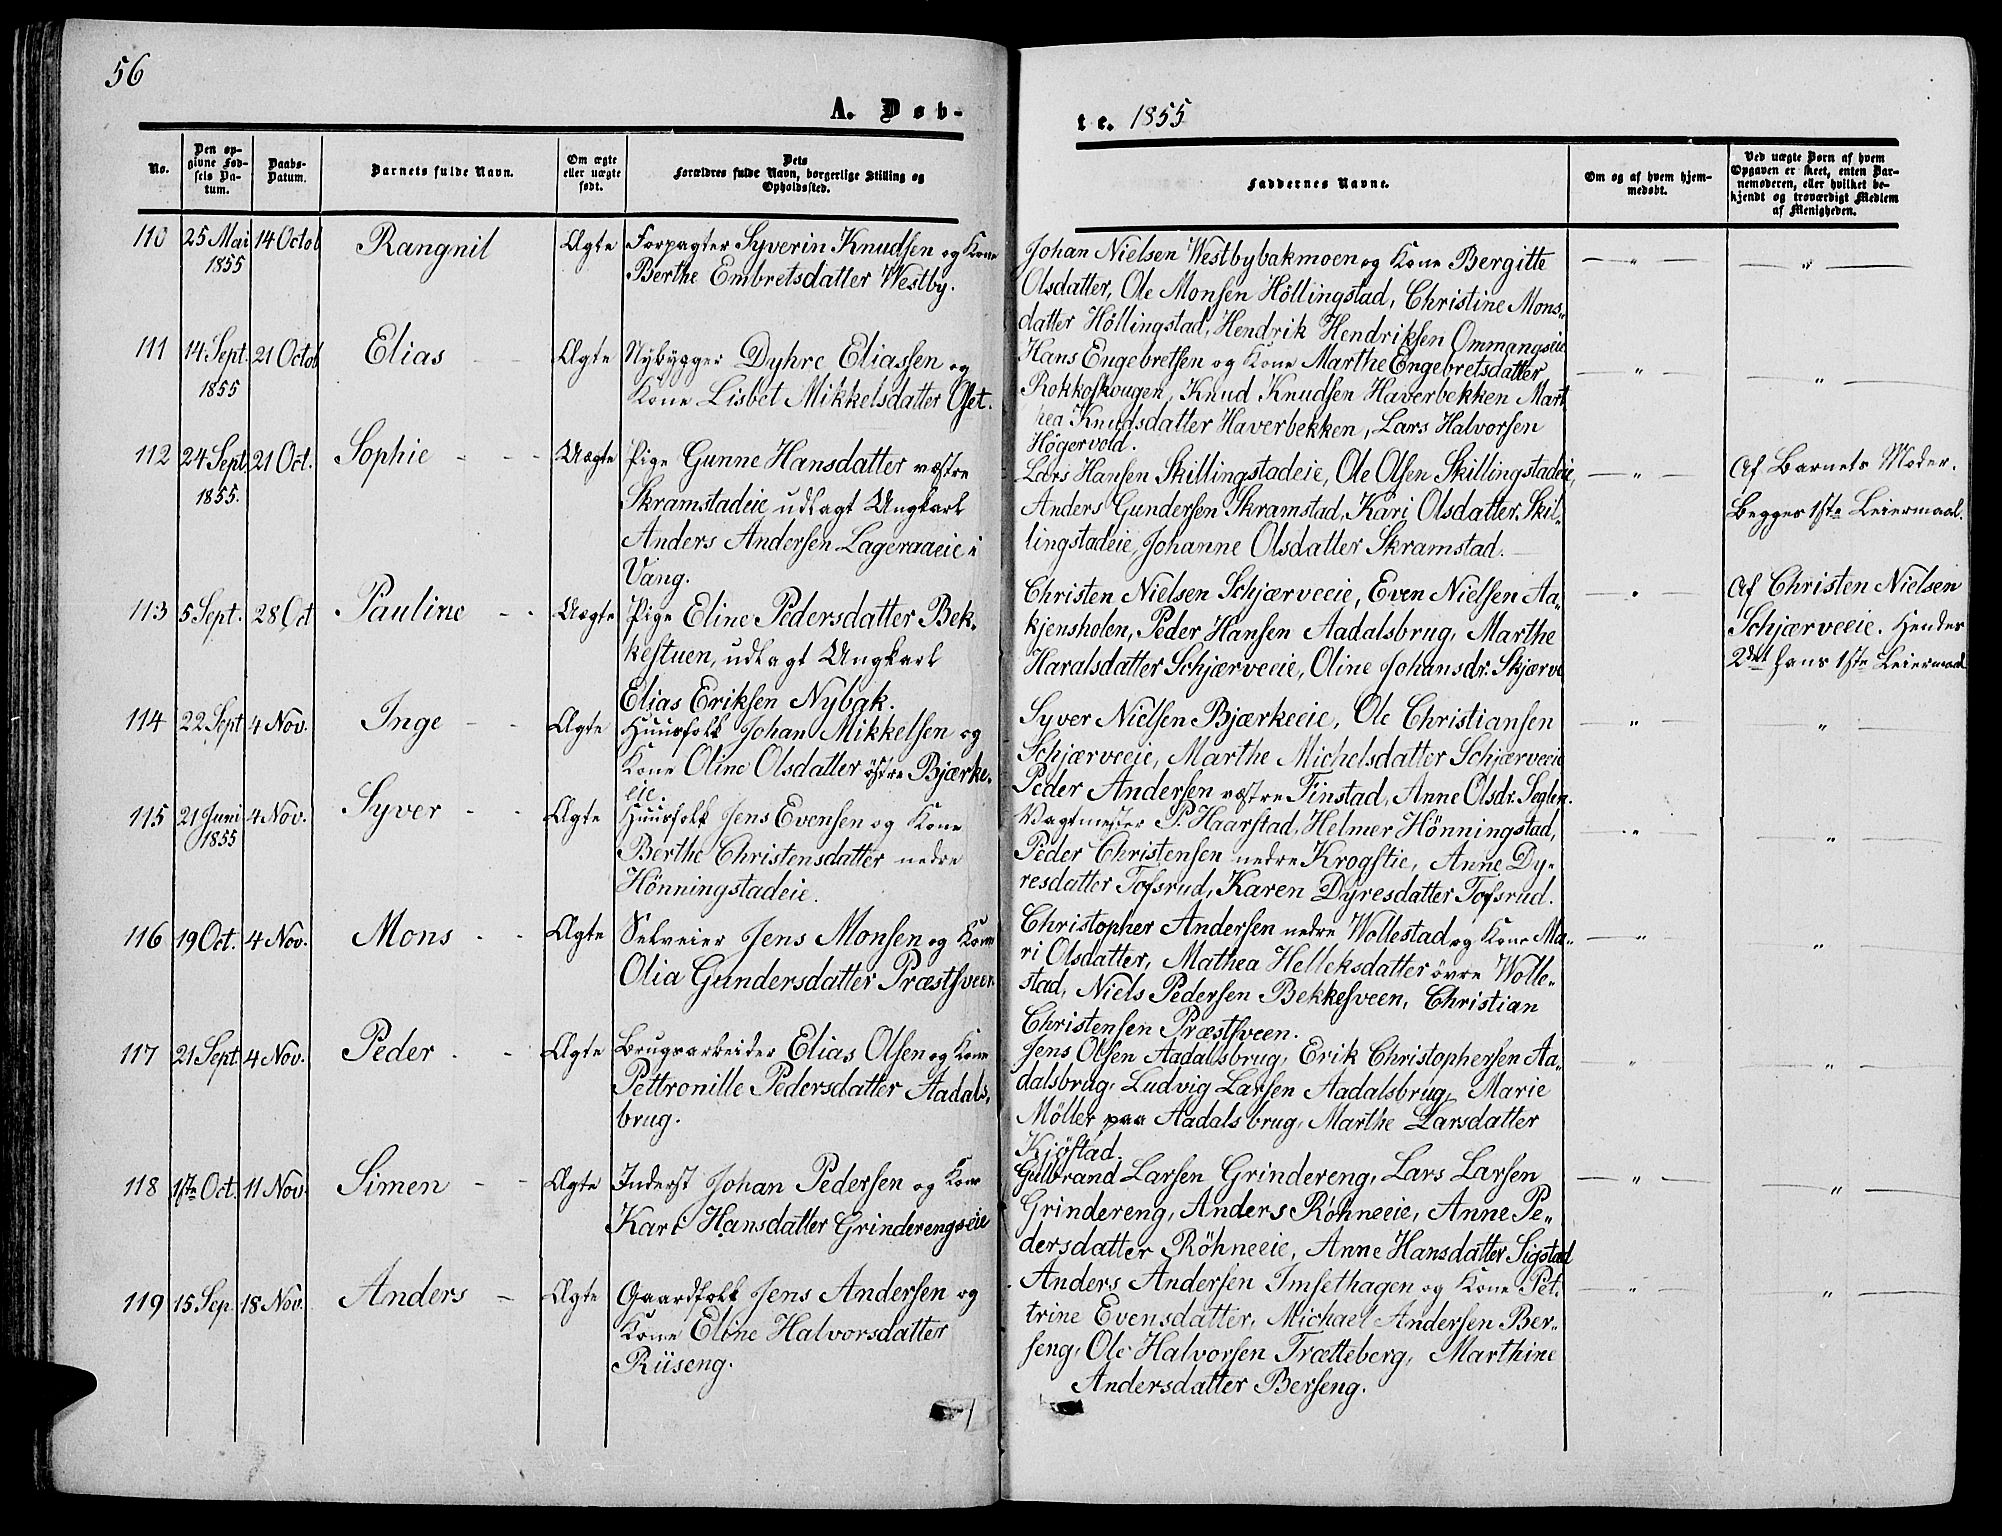 56
A. Døb-
te. 1855
No.
Den op-
givne Fød-
sels Da-
tum.
Daabs-
Datum.
Barnets fulde Navn.
Om ægte
eller uægte
født.
Dets
Forældres fulde Navn, borgerlige Stilling og
Opholdssted.
Faddernes Navne.
Om og af hvem hjem-
medøbt.
Ved uægte Børn af hvem
Opgaven er skeet, enten Bar-
nemoderen, eller hvilket be-
kjendt og troværdigt Medlem
af Menigheden.
110 25 Mai 1855 14 Octob Rangnil Ægte
Forpagter Syverin Knudsen og Kone
Berthe Embretsdatter Westby.
Johan Nielsen Westbybakmoen og Kone Bergitte
Olsdatter, Ole Monsen Höllingstad, Christine Mons-
datter Höllingstad, Hendrik Hendriksen Ommangseie
111 14 Sept. 1855 21 Octob Elias Ægte
Nybygger Dyhre Eliassen og
Kone Lisbet Mikkelsdatter Oset.
Hans Engebretsen og Kone Marthe Engebretsdatter
Rokkoskougen, Knud Knudsen Haverbekken Mart
hea Knudsdatter Haverbekken, Lars Halvorsen
Högervold.
112 24 Sept 1855. 21 Oct. Sophie Uægte
Pige Gunne Hansdatter vestre
Skramstadeie udlagt Ungkarl
Anders Andersen Lageraaeie i
Vang.
Lars Hansen Skillingstadeie, Ole Olsen Skillingstadeie,
Anders Gundersen Skramstad, Kari Olsdatter Skil-
lingstadeie, Johanne Olsdatter Skramstad.
Af Barnets Moder.
Begges 1ste Leiermaal.
113 5 Sept. 28 Oct Pauline Uægte
Pige Eline Pedersdatter Bek-
kestuen, udlagt Ungkarl
Elias Eriksen Nybak.
Christen Nielsen Schjærveeie, Even Nielsen Aa-
kjensholen, Peder Hansen Aadalsbrug, Marthe
Haralsdatter Schjærveeie, Oline Johansdr. Skjærve
Af Christen Nielsen
Schjærveeie. Hendes
2det hans 1ste Leiermaal
114 22 Sept 4 Nov. Inge Ægte
Huusfolk Johan Mikkelsen og
Kone Oline Olsdatter östre Bjærke-
eie.
Syver Nielsen Bjærkeeie, Ole Christiansen
Schjærveeie, Marthe Michelsdatter Schjærveeie
Peder Andersen vestre Finstad, Anne Olsdr. Seglen.
115 21 Juni 1855 4 Nov. Syver Ægte
Huusfolk Jens Evensen og Kone
Berthe Christensdatter nedre
Hönningstadeie.
Vagtmester P. Haarstad, Helmer Hönningstad,
Peder Christensen nedre Krogstie, Anne Dy-
resdatter Tofsrud, Karen Dyresdatter Tofsrud.
116 19 Oct. 4 Nov. Mons Ægte
Selveier Jens Monsen og Kone
Olia Gundersdatter Præstsveen
Christopher Andersen nedre Wollestad og Kone Ma-
ri Olsdatter, Mathea Helleksdatter övre Wolle-
stad, Niels Pedersen Bekkesveen, Christian
Christensen Præstsveen.
117 21 Sept 4 Nov. Peder Ægte
Brugsarbeider Elias Olsen og Kone
Pettronille Pedersdatter Aadals-
brug.
Jens Olsen Aadalsbrug, Erik Christophersen Aa-
dalsbrug, Ludvig Larsen Aadalsbrug, Marie
Möller paa Aadalsbrug, Marthe Larsdatter
Kjöstad.
118 1ste Oct. 11 Nov. Simen Ægte
Inderst Johan Pedersen og Kone
Kari Hansdatter Grinderengseie
Gulbrand Larsen Grindereng, Lars Larsen
Grindereng, Anders Röhneeie, Anne Pe-
dersdatter Röhneeie, Anne Hansdatter Sigstad
119 15 Sep. 18 Nov. Anders Ægte
Gaardfolk Jens Andersen og
Kone Eline Halvorsdatter
Riiseng.
Anders Andersen Imsethagen og Kone Pet-
trine Evensdatter, Michael Andersen Ber-
seng, Ole Halvorsen Trætteberg, Marthine
Andersdatter Berseng.